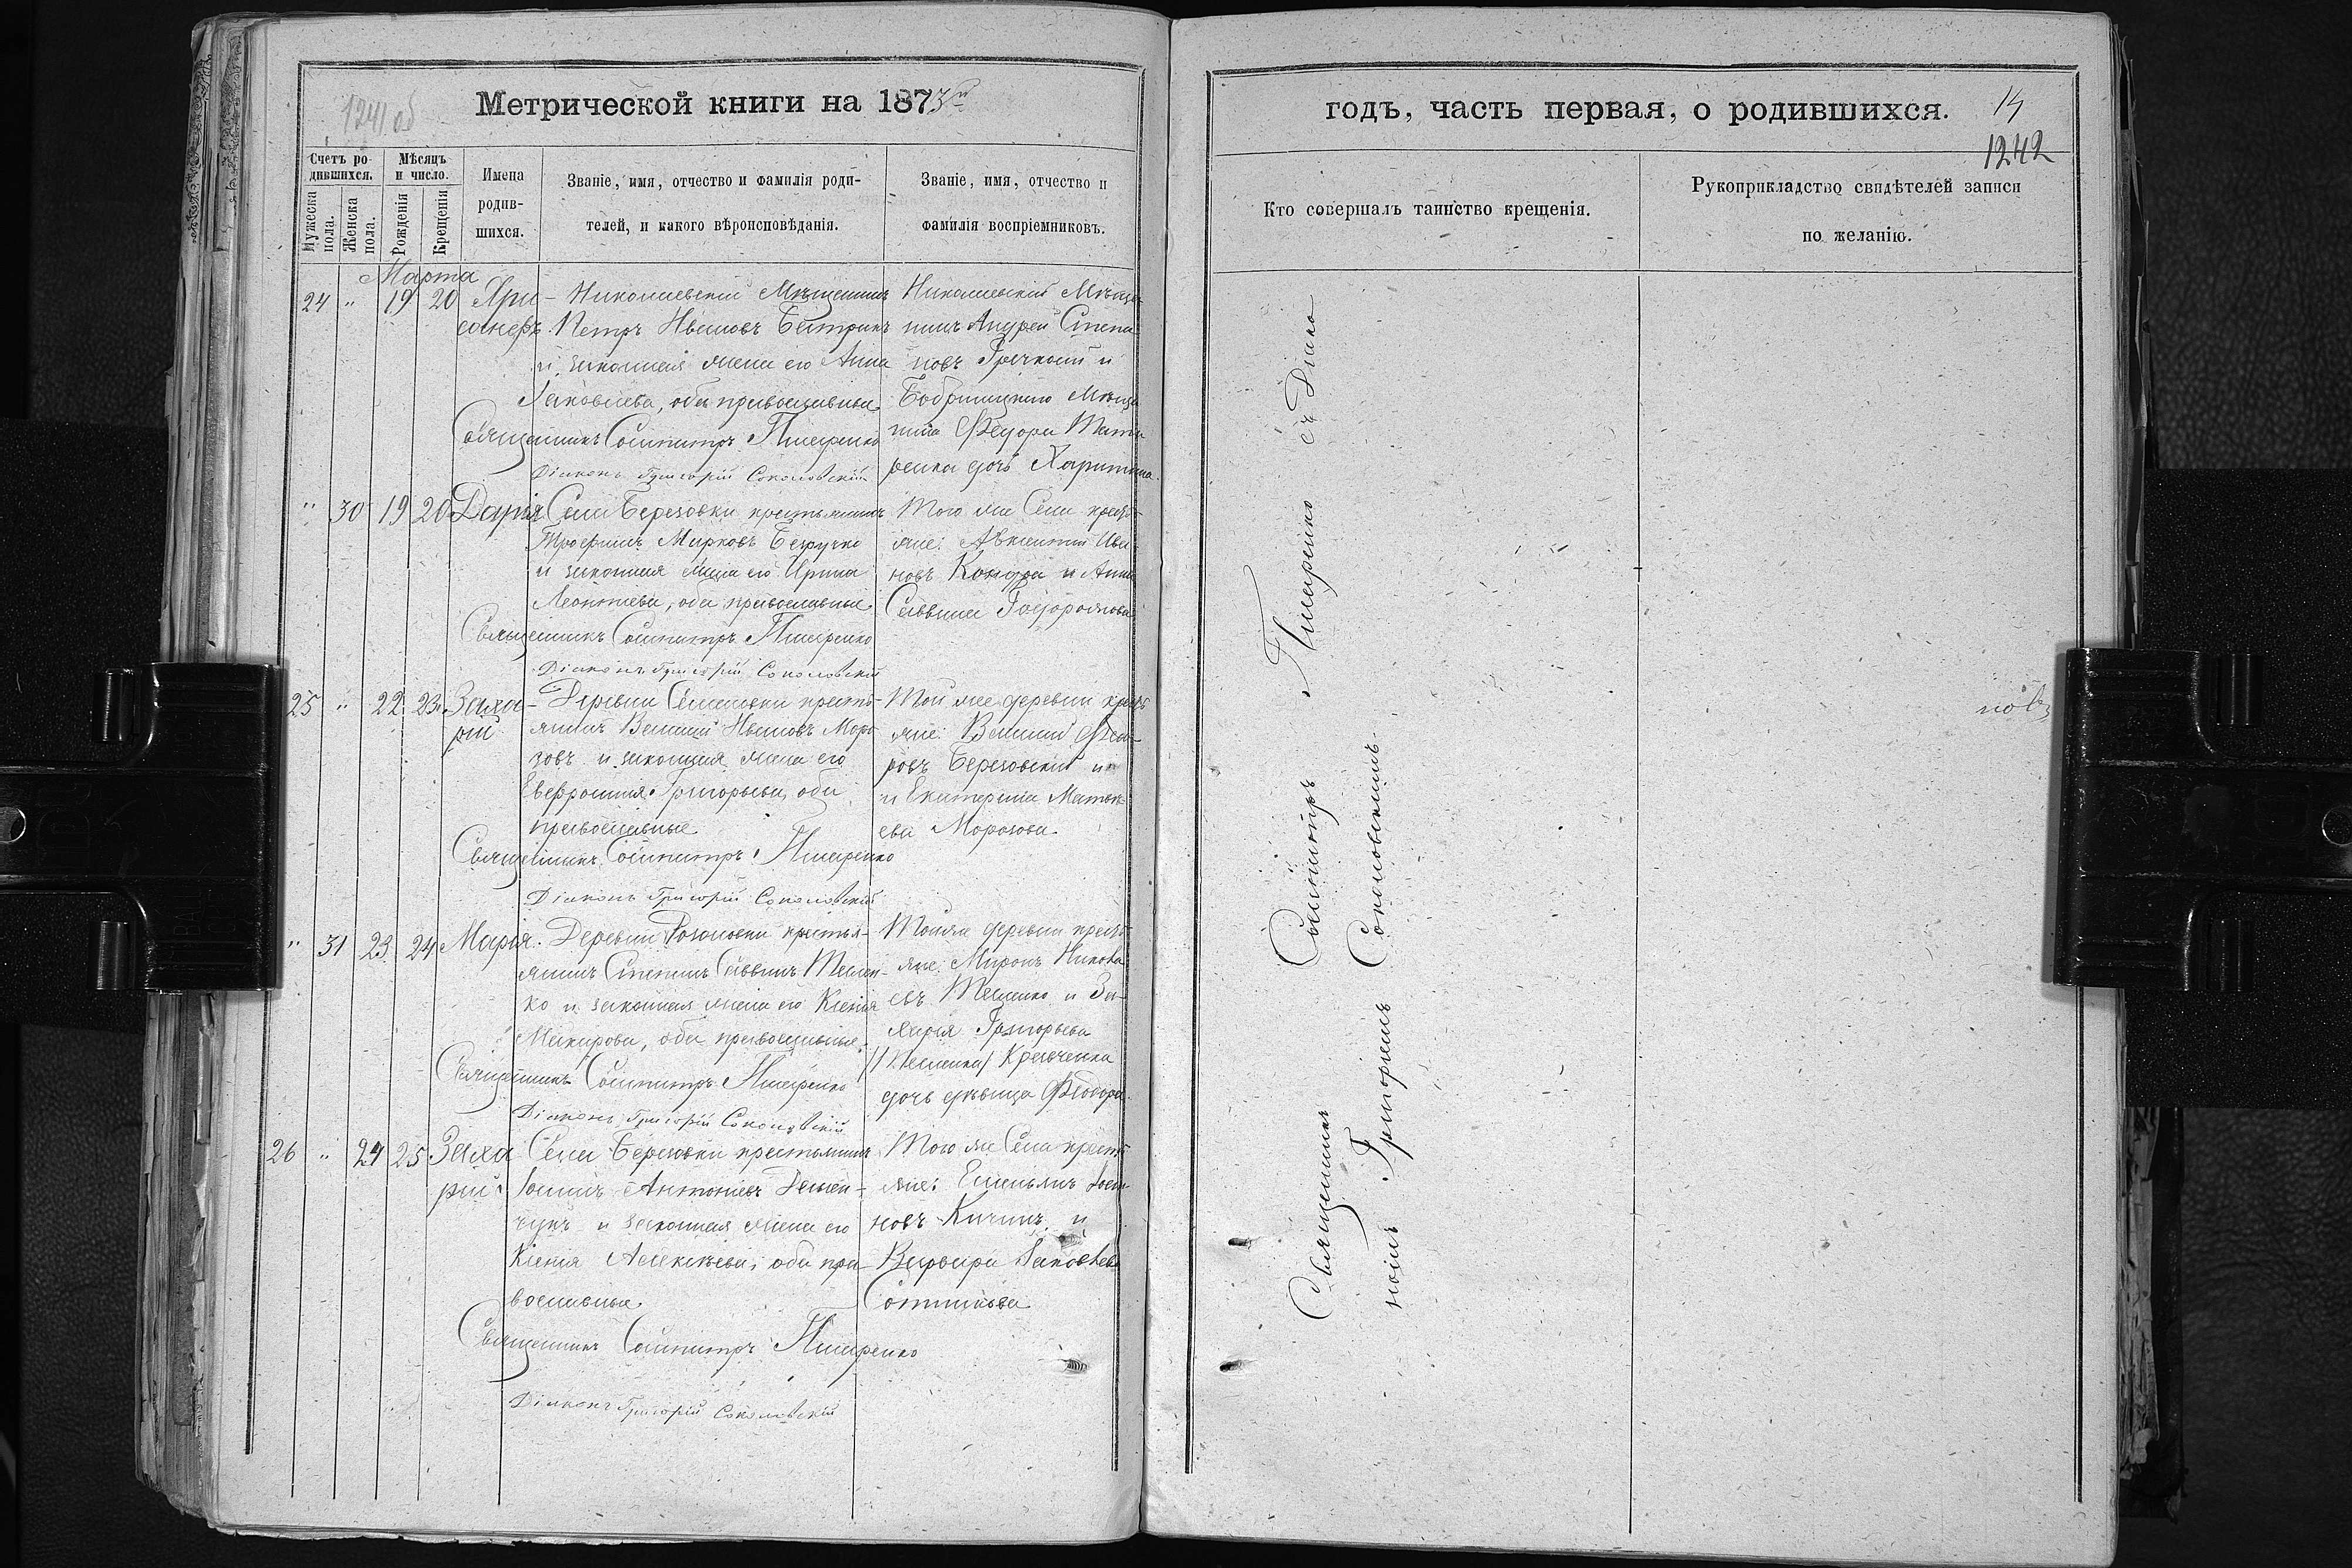 1241 об
Метрической книги на 1873й
Счетъ родившихся.
Мѣсяцъ и число.
Имена родившихся.
Званіе, имя, отчество и фамилія родителей, и какого вѣроисповѣданія.
Званіе, имя, отчество и фамилія воспріемниковъ.
Мужеска пола.
Женска пола.
Рожденія
Крещенія
Марта
24 " 19 20 Хри-
санфъ
Николаевскій Мѣщанинъ
Петръ Ивановъ
и законная жена его Анна
Іаковлева, оба православные
Священникъ Писаренко
Діаконъ Григорій Соколовскій
Николаевскій Мѣща-
нинъ Андрей Степа-
новъ и
Бобринецкаго Мѣща-
нина Федора
дочь Харитина
" 30 19 20 Дарія
Села Березовки крестьянинъ
Трофимъ Марковъ
и законная жена его Ирина
Леонтіева, оба православные
Священникъ Писаренко
Діаконъ Григорій Соколовскій
Того же Села крестья-
не: Авксентій Ива-
новъ Кондра и Анна
Саввина
25 " 22 23 Заха-
рій
Деревни Семеновки кресть-
янинъ Василій Ивановъ Моро-
зовъ и законная жена его
Евфросинія Григорьева, оба
православные
Священникъ Писаренко
Діаконъ Григорій Соколовскій
Той же деревни кресть-
яне: Василій Федо-
ровъ Березовскій и
и Екатерина Матвѣ-
ева Морозова
" 31 23 24 Марія
Деревни крестья-
янинъ Степанъ Саввинъ
ко и законная жена его Ксенія
Макарова, оба православные.
Священникъ Писаренко
Діаконъ Григорій Соколовскій
Той же деревни кресть-
яне: Миронъ Никола-
евъ и За-
харія Григорьева
Кравченка
дочь дѣвица Феодора
26 " 24 25 Заха-
рій
Села Березовки крестьянинъ
Іоаннъ Антоніевъ Демен-
чукъ и законная жена его
Ксенія Алексѣева, оба пра-
вославные
Священникъ Писаренко
Діаконъ Григорій Соколовскій
Того же Села кресть-
яне: Емельянъ
новъ Кичинъ и
Варвара Іаковлева
Сотникова
годъ, часть первая, о родившихся.
14
1242
Кто совершалъ таинство крещенія.
Рукоприкладство свидѣтелей записи по желанію.
Священникъ Писаренко съ Діако-
номъ Григоріемъ Соколовскимъ